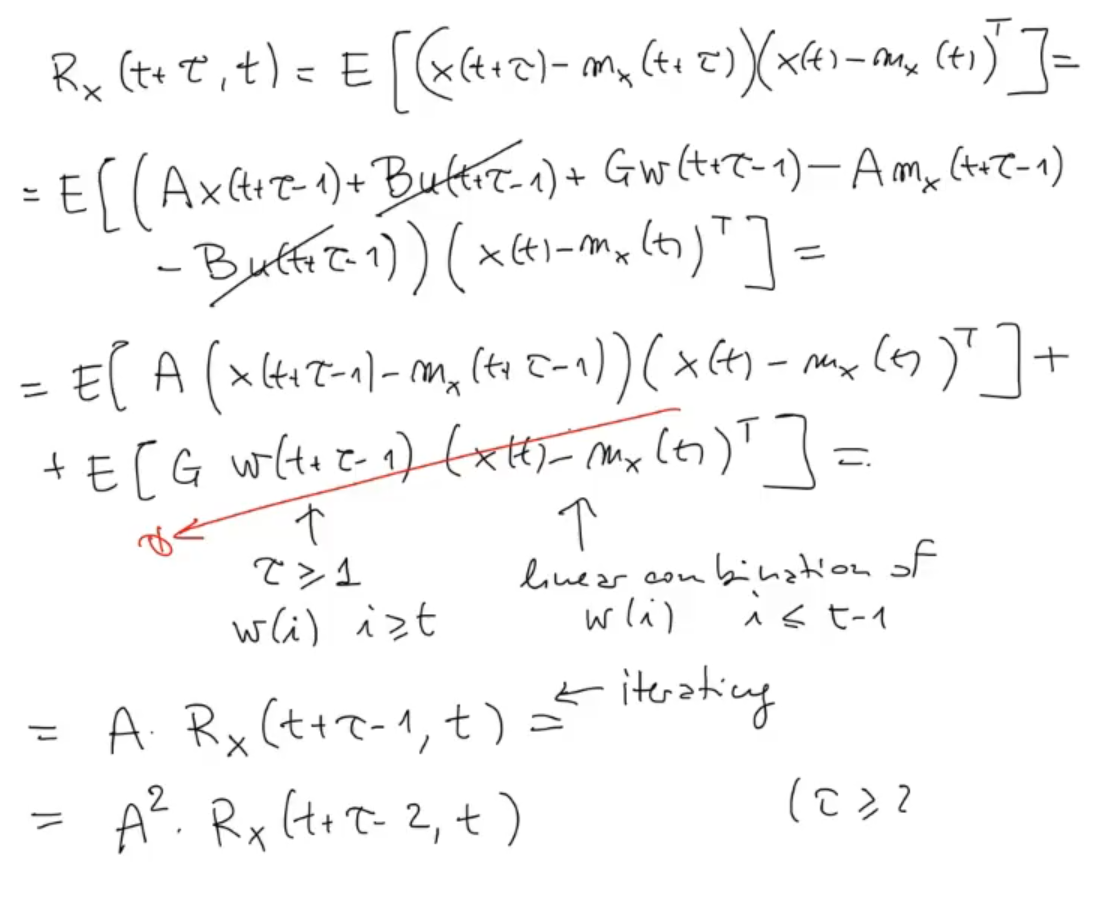 R_x (t+τ, t) = E [(x(t+τ) - m_x (t+τ))(x(t) - m_x (t))^T] =
= E[(A x(t+τ-1) + Bu(t+τ-1) + Gw(t+τ-1) - A m_x (t+τ-1)
- Bu(t+τ-1))(x(t) - m_x (t))^T] =
= E[A (x(t+τ-1) - m_x (t+τ-1))(x(t) - m_x (t))^T] +
+ E[G w(t+τ-1) (x(t) - m_x (t))^T] =
0 ↑ ↑
τ ≥ 1 linear combination of
w(i) i ≥ t w(i) i ≤ t-1
= A · R_x (t+τ-1, t) = ← iterating
= A^2 · R_x (t+τ-2, t) (τ ≥ 2